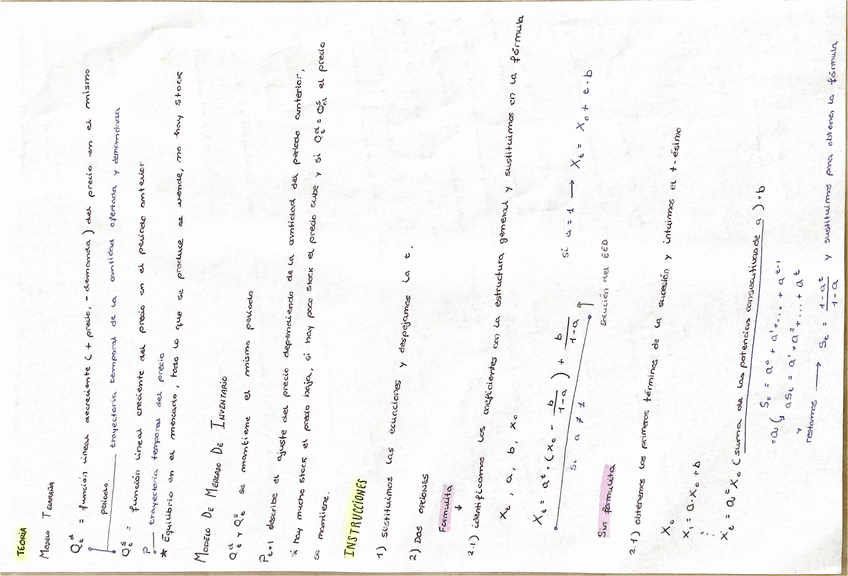 TEORIA
MODELO TELARAÑA
Qᵈₜ = función lineal decreciente (+ precio, - demanda) del precio en el mismo
periodo.
trayectoria temporal de la cantidad ofertada y demandada
Qˢₜ = función lineal creciente del precio en el periodo anterior
P trayectoria temporal del precio
* Equilibrio en el mercado, todo lo que se produce se vende, no hay stock
MODELO DE MERCADO DE INVENTARIO
Qᵈₜ y Qˢₜ se mantiene el mismo periodo
Pₜ₊₁ describe el ajuste del precio dependiendo de la cantidad del periodo anterior,
si hay mucho stock el precio baja, si hay poco stock el precio sube y si Qˢₜ = Qᵈₜ el precio
se mantiene.
INSTRUCCIONES
1) Sustituimos las ecuaciones y despejamos la t.
2) Dos opciones
Formulita
↓
2.1) identificamos los coeficientes con la estructura general y sustituimos en la fórmula
Xₜ, a, b, x₀
Xₜ = aᵗ · (x₀ - b/(1-a)) + b/(1-a)
Si a = 1 → Xₜ = X₀ + t · b
Si a ≠ 1
Solución del EED
Sin formulita
2.1) obtenemos los primeros términos de la sucesión y intuimos el t-ésimo
X₀
X₁ = a · X₀ + b
⋮
Xₜ = aᵗ · X₀ (suma de las potencias consecutivas de a) · b
·a ( Sₜ = a⁰ + a¹ + ... + aᵗ⁻¹
aSₜ = a¹ + a² + ... + aᵗ
restamos → Sₜ = (1-aᵗ)/(1-a) y sustituimos para obtener la fórmula